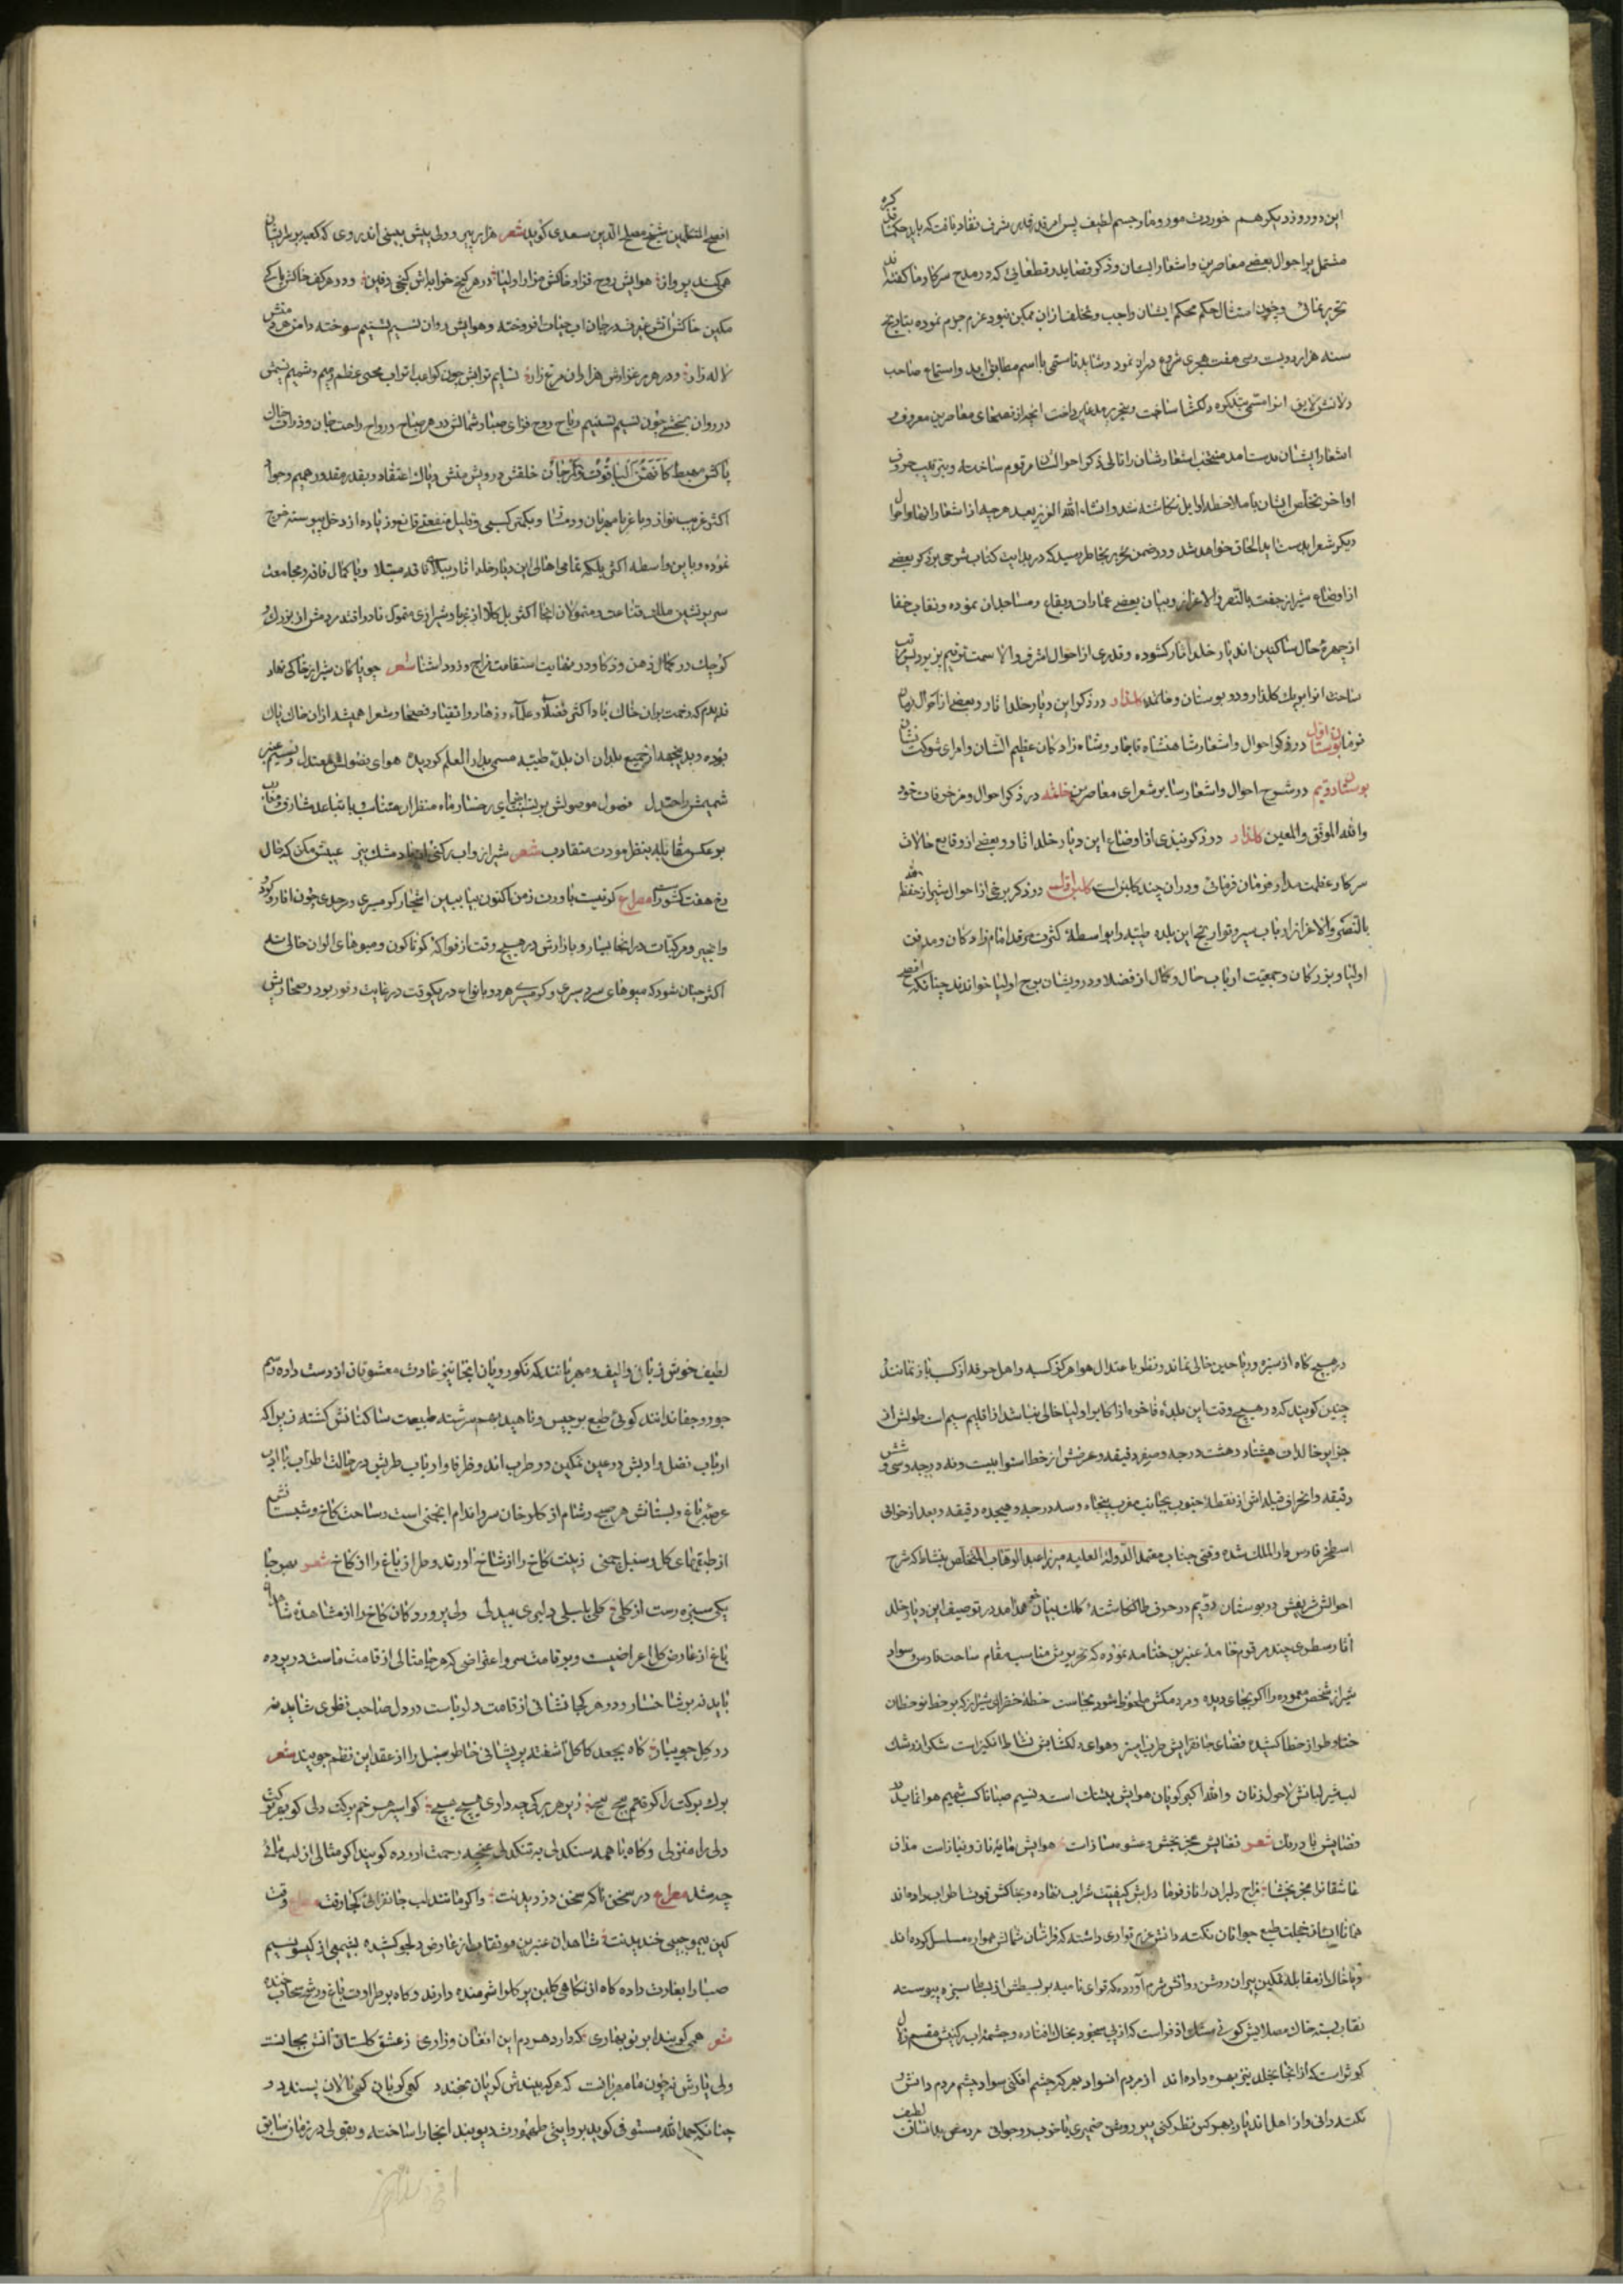 این دو روز دیگر هم خوردت مور و مار جسم لطیف پس امر قدر قدر شرف نفاد یافت که باید
مشتمل بر احوال بعضی معاصرین و اشعار ایشان و ذکر قصاید و قطعاتی که در مدح سرکار ما گفته اند
تحریر نمائی و چون امتثال حکم محکم ایشان واجب و تخلف از ان ممکن نبود عزم جزم نموده بتاریخ
سنه هزار و دویست و سی هفت هجری شروع دران نمود و شاید تا اسمی با اسم مطابق اید و استماع صاحب
دلانش لایق انرا مسمی بتذکره دلکشا ساخت و بتحریر مدعا پرداخت انچه از فصحای معاصرین معروف و
اشعار ایشان بدست امد منتخب اشعارشان را تالی ذکر احوالشان مرقوم ساخته و بترتیب حروف
اواخر تخلص ایشان با ملاحظه اوایل نکاشته شد و انشاء الله العزیز بعد هر چه از اشعار انها و احوال
دیکر شعرا بدست اید الحاق خواهد شد و در ضمن تحریر بخاطر رسید که در بدایت کتاب شرحی بر ذکر بعضی
از اوضاع شیراز حفت بالنصر و الاعزاز و بیان بعضی عمارات و بقاع و مساجد ان نموده و نقاب خفا
از چهره حال ساکنین اندیار خلد اثار کشوده و قدری از احوال اشرف والا سمت ترقیم پزیرد پس
ساحت انرا بیک کلزار و دو بوستان و خاتمه کلزار در ذکر این دیار خلد اثار و بعضی از احوال
فرمان بوستان اول در ذکر احوال و اشعار شاهنشاه تاجدار و شاه زادکان عظیم الشان و امرای شوکت نشان
بوستان دویم در شرح احوال و اشعار سایر شعرای معاصرین خاتمه در ذکر احوال و مزخرفات خود
والله الموفق والمعین کلزار در ذکر نبذی از اوضاع این دیار خلد اثار و بعضی از وقایع حالات
سرکار عظمت مدار فرمان فرمائی و دران چند کلبن است کلبن اول در ذکر برخی از احوال شیراز حفظه الله
بالنصر والاعزاز ارباب سیر و تواریخ این بلده طیبه را بواسطه کثرت مرقد امام زادکان و مدفن
اولیا و بزرکان و جمعیت ارباب حال و کمال از فضلا و درویشان برج اولیا خواندند چنانکه افصح
افصح المتکلمین شیخ مصلح الدین سعدی کوید شعر هزار پیر و ولی بیش بینی اندر وی که کعبه بر سر ایشان
همی کند پرواز هوایش روح فزا و خاکش مزار اولیا در هر کنج خرابه اش کنجی دفین و در هر کف خاکش پاکی
مکین خاکش اتش غیرت در جان اب حیات افروخته و هوایش روان نسیم تسنیم سوخته دامن هر دمنش
لاله زار و در هر مرغزارش هزاران مرغ زار نسایم نوایش چون کواعب اتراب محیی عظم رمیم و شمیم نسیمش
در روان بخشی چون نسیم تسنیم ریاح روح فزای صبا و شمالش در هر صباح و رواح راحت جان و ذرات خاک
پاکش مهبط کانهن الیاقوت والمرجان خلقش درویش منش و پاک اعتقاد و بقدر مقدور رحیم و جواد
اکثر غریب نواز و با غربا مهربان و دمساز و بکمتر کسبی و قلیل منفعتی قانع و زیاده از دخل پیوسته خرج
نموده و باین واسطه اکثر بلکه تمامی اهالی این دیار خلد اثار ببلای فاقه مبتلا و با کمال فاقه و مجامعت
سریر نشین ملک قناعت و متمولان انجا اکثر بل کلا از غربا و شیرازی متمول نادر افتد مردمش از بزرک و
کوچک در کمال ذهن و ذکا و در نهایت استقامت مزاج و زود اشنا شعر چو پاکان شیراز خاکی نهاد
ندیدم که رحمت بران خاک باد اکثر فضلا و علماء و زهاد و اتقیا و فصحا و شعرا همیشه از ان خاک پاک
بوده و بدینجهه از جمیع بلدان ان بلده طیبه مسمی بدار العلم کردیده هوای فصولش معتدل و نسیم عنبر
شمیمش راحت دل فصول موصولش
بر عکس مقابله بنظر مودت متقارب شعر شیراز و اب رکنی و این باد خوش نسیم عیبش مکن که خال
رخ هفت کشور است مصراع کرنیست باورت ز من اکنون بیا ببین اشجار کرمسیری و سردسیری چون انار و کردو
و انجیر و مرکبات در انجا بسیار و بازارش در هیچ وقت از فواکه کوناکون و میوهای الوان خالی نه
اکثر چنان شود که میوهای سردسیری و کرمسیری هر دو بانواع در یکوقت در غایت وفور بود و صحاریش
در هیچ کاه از سبزه و ریاحین خالی نماند و نظر با عتدال هوا هرکز کسبه و اهل حرفه از کسب باز نمانند
چنین کویند که در هیچ وقت این بلده فاخره از اکابر اولیا خالی نباشد از اقلیم سیم است طولش از
جزایر خالدات هشتاد و هشت درجه و صفر دقیقه و عرضش از خط استوا بیست و نه درجه و سی و شش
دقیقه و انحراف قبله اش از نقطه جنوب بجانب مغرب پنجاه و سه درجه و هیجده دقیقه و بعد از خرابی
اسطخر فارس دار الملک شده وقتی جناب معتمد الدوله العلیه میرزا عبد الوهاب المتخلص بنشاط که شرح
احوالش شریفش در بوستان دویم در حرف طا نکاشته کلک بیان خواهد امد در توصیف این دیار خلد
اثار سطری چند مرقوم خامه عنبرین ختامه نموده که تحریرش مناسب مقام ساحت فارس و سواد
شیراز شخص معموره را اکر بجای دیده و مردمکش ملحوظ شود بجاست خطه خضرای شیراز که بر خط نوخطان
ختا و طراز خط کشیده فضای جانفزایش طرب امیز و هوای دلکشایش نشاط انکیز است شکر از رشک
لب شیر لبانش لاحول زنان و الله اکبر کویان هوایش بیشک است و نسیم صبا تا کسب شمیم هوا نماید در
فضایش با درنک شعر فضایش عجز بخش و عشوه ساز است هوایش مایه ناز و نیاز است مذاق
عاشقانرا عجز بخشا مزاج دلبران را ناز فرما در ابش کیفیت شراب نهاده و بخاکش قوت نشاط طرب داده اند
همانا از خجلت طبع جوانان نکته دانش عزم تواری داشته که فراشان شمالش همواره مسلسل کرده اند
و یا خاک از مقابله تمکین پیران روشن روانش شرم آورده که قوای نامیه بر بسیطش از بساط سبزه پیوسته
نقاب بسته خاک مصلایش کوئی مشک اذفر است که از پی سجود بخاک افتاده و چشمه اب رکنیش مقسم زلال
کوثر است که از انجا بخلد نیز بهره داده اند از مردم انسواد بهر که چشم افکنی سواد چشم مردم دانش و
نکته دانی و از اهل اندیار بهر کس نظر کنی پیر روشن ضمیری یا خوب رو جوانی مردمش بدانسان لطیف
لطیف خوش زبان و الیف و مهربانند که نکورویان انجا نیز عادت معشوقان از دست داده رسم
جور و جفا ندانند کوئی طبع برجیس و ناهید بهم سرشته طبیعت ساکنانش کشته زیرا که
ارباب فضل و ادبش در عین تمکین در طرب اند و ظرفا و ارباب طربش در حالت اطراب با ادب
عرصه باغ و بستانش هر صبح و شام از کلرخان سرو اندام انجمنی است و ساحت کاخ و شبستانش
از طبقهای کل و سنبل چمنی زینت کاخ را از شاخ اورند و طراز باغ را از کاخ شعر بهر جا
یکی سبزه رست از کلی کلی با سیلی دلبری بیدلی ولی پرورد کان کاخ را از مشاهده شاهد
باغ از عارض کل اعراضیست و بر قامت سرو اعتراضی که هر جا مثالی از قامت ماست در پرده
باید نه بر شاخسار و در هر کجا نشانی از قامت دلرباست در دل صاحب نظری شاید نه
در کل جویبار کاه بجعد کاکل آشفته پریشانی خاطر سنبل را از عقد این نظم جویند شعر
دلی را منزلی و کاه با همه سنکدلی بر تنکدلی غنچه رحمت اورده کویند اکر مثالی از لب مائی
چه شد مصراع در سخن ناکه سخن دزدیدنت و اکر مانند لب جانفزائی کجا رفت مصراع وقت
کین بیموجبی خندیدنت شاهدان عنبرین مو نقاب از عارض دلجو کشیده بشمیمی از کیسو نسیم
صبا را بغارت داده کاه از نکاهی کلبن پر کل را شرمنده دارند و کاه بر طراوت باغ و رشح سحاب خنده
شعر همی کویند ابر نوبهاری که دارد هر دم این افغان و زاری ز عشق کلستان اتش بجانست
ولی یارش نه چون ما مهربانست که هر که بیندش کریان بخندد کهی کریان کهی نالان پسندد و
چنانکه حمدالله مستوفی کوید بروایتی طهمورث دیوبند انجا را ساخته و بقولی در زمان سابق